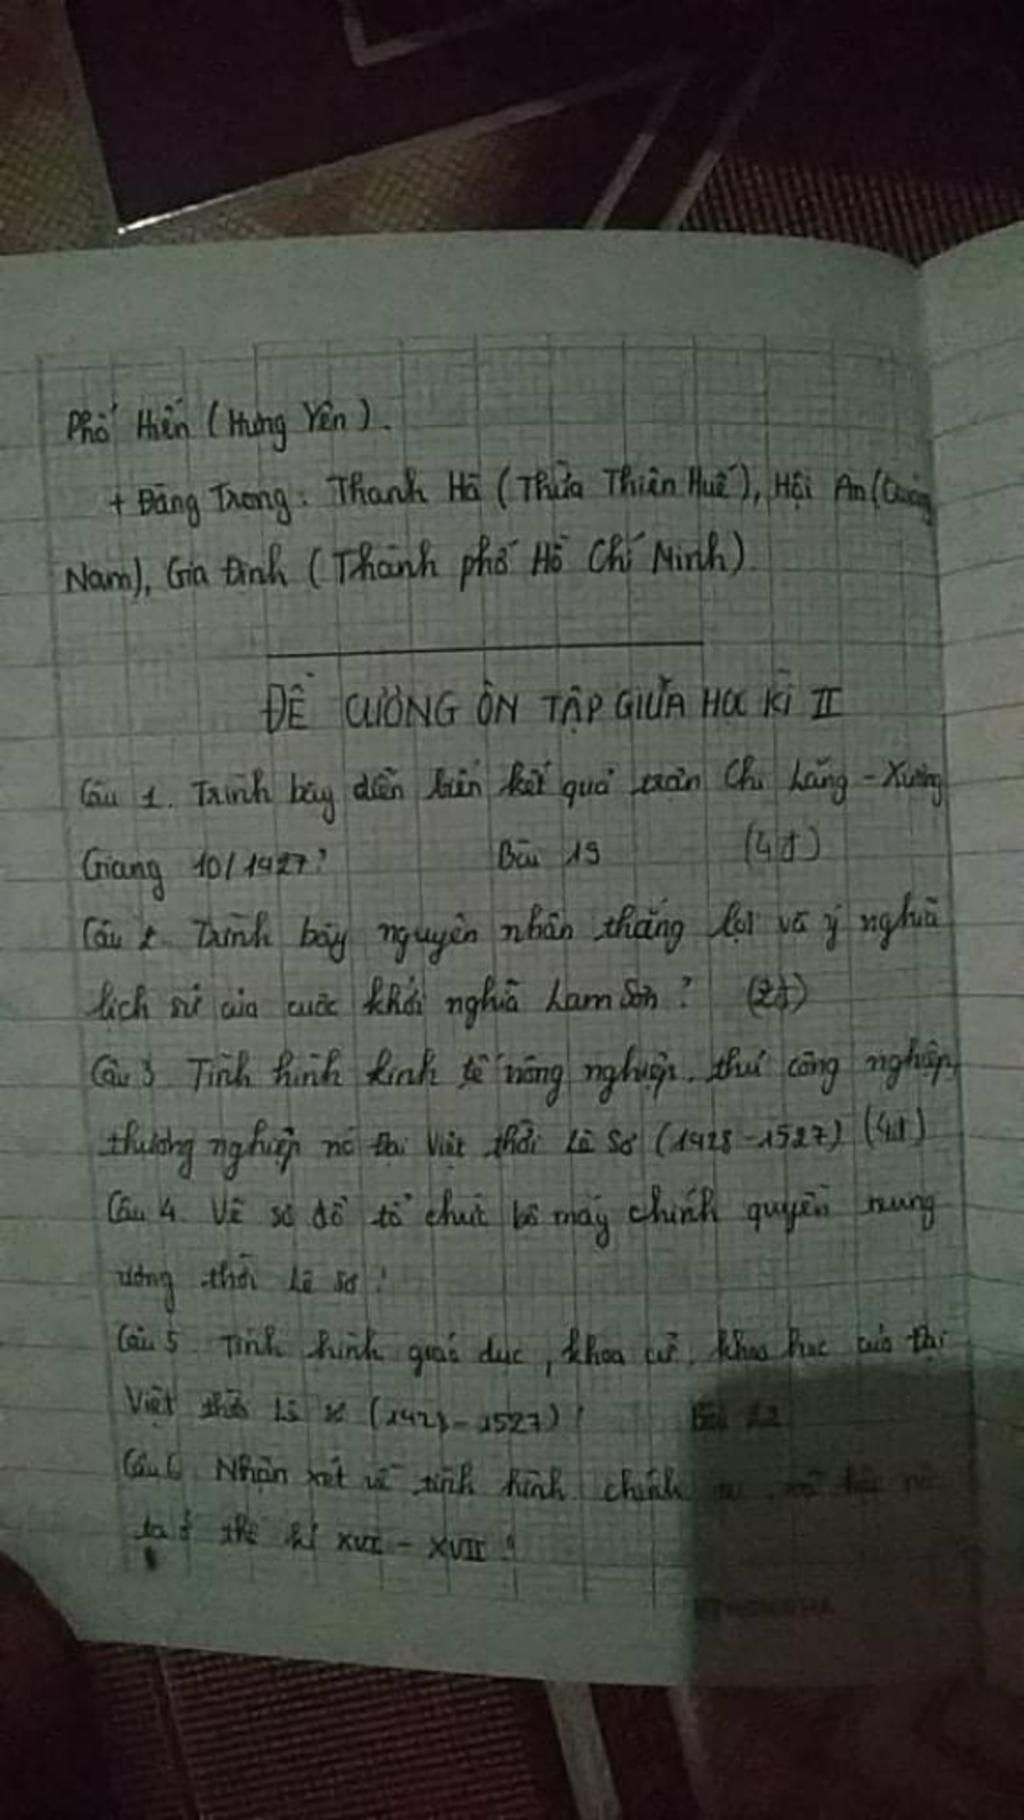 Phố Hiến (Hưng Yên).
+ Đàng Trong: Thanh Hà (Thừa Thiên Huế), Hội An (Quảng
Nam), Gia Định (Thành phố Hồ Chí Minh)
ĐỀ CƯƠNG ÔN TẬP GIỮA HỌC KÌ II
Câu 1. Trình bày diễn biến kết quả trận Chi Lăng - Xương
Giang 10/1427? Bài 19 (4đ)
Câu 2. Trình bày nguyên nhân thắng lợi và ý nghĩa
lịch sử của cuộc khởi nghĩa Lam Sơn? (2đ)
Câu 3 Tình hình kinh tế nông nghiệp, thủ công nghiệp,
thương nghiệp nc Đại Việt thời Lê Sơ (1428-1527) (4đ)
Câu 4. Vẽ sơ đồ tổ chức bộ máy chính quyền trung
ương thời Lê sơ?
Câu 5. Tình hình giáo dục, khoa cử, khoa học của Đại
Việt thời Lê sơ (1428-1527)?
Câu 6 Nhận xét về tình hình chính
ta ở thế kỉ XVI - XVII?